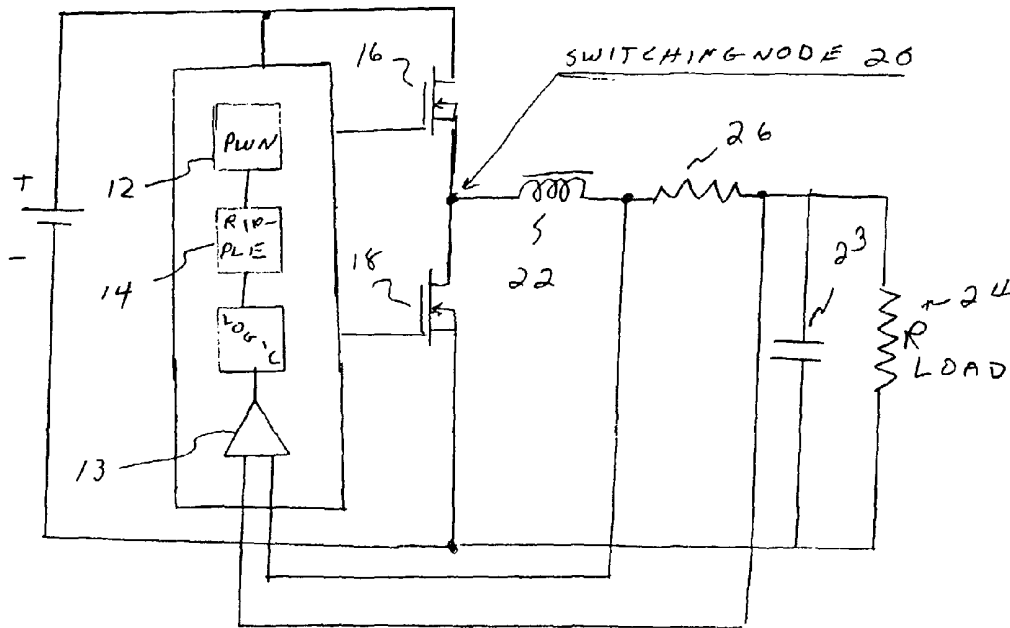 16
SWITCHING NODE 20
PWN
12
26
+
-
RIP-
PLE
14
18
22
23
24
R
LOAD
LOGIC
13